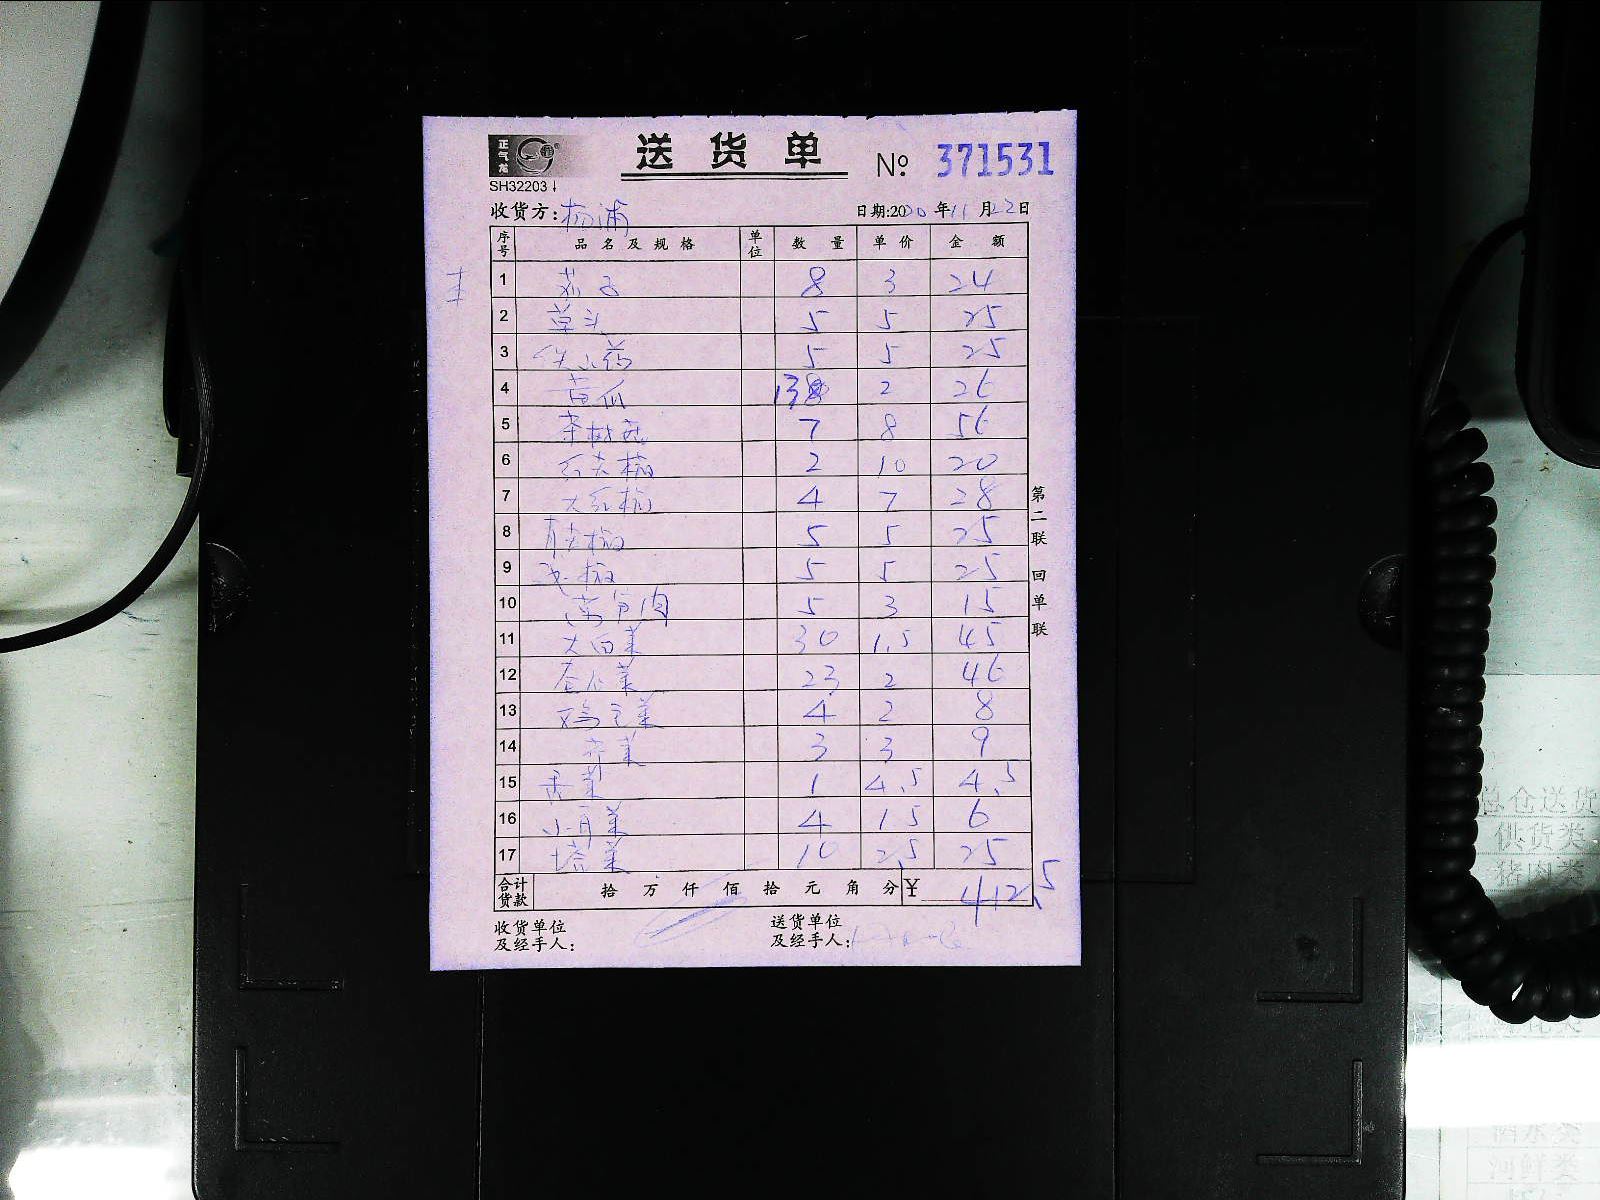 正气龙
送货单
№ 371531
SH32203
收货方:杨浦
日期:2020年11月22日
序号 品名及规格 单位 数量 单价 金额
1 8 3 24
2 草头 5 5 25
3 5 5 25
4 黄瓜 13 2 26
5 茶树菇 7 8 56
6 红尖椒 2 10 20
7 大红椒 4 7 28
8 青尖椒 5 5 25
9 5 5 25
10 5 3 15
11 大白菜 30 1.5 45
12 卷心菜 23 2 46
13 鸡毛菜 4 2 8
14 芹菜 3 3 9
15 香菜 1 4.5 4.5
16 小青菜 4 1.5 6
17 塔菜 10 2.5 25
合计货款 拾万仟佰拾元角分 ¥ 412.5
收货单位及经手人:
送货单位及经手人:
第二联 回单联
总仓送货
供货类
猪肉类
酒水类
河鲜类